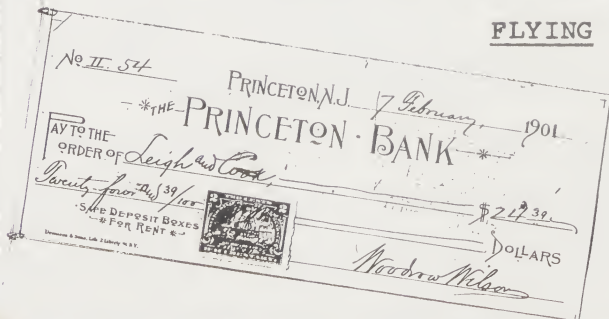 FLYING
No II. 54
PRINCETON, N.J. 7 February, 1901
THE PRINCETON BANK
PAY TO THE
ORDER OF Leigh and Cook, $24 39.
Twenty-four and 39/100 DOLLARS
SAFE DEPOSIT BOXES
FOR RENT
Woodrow Wilson